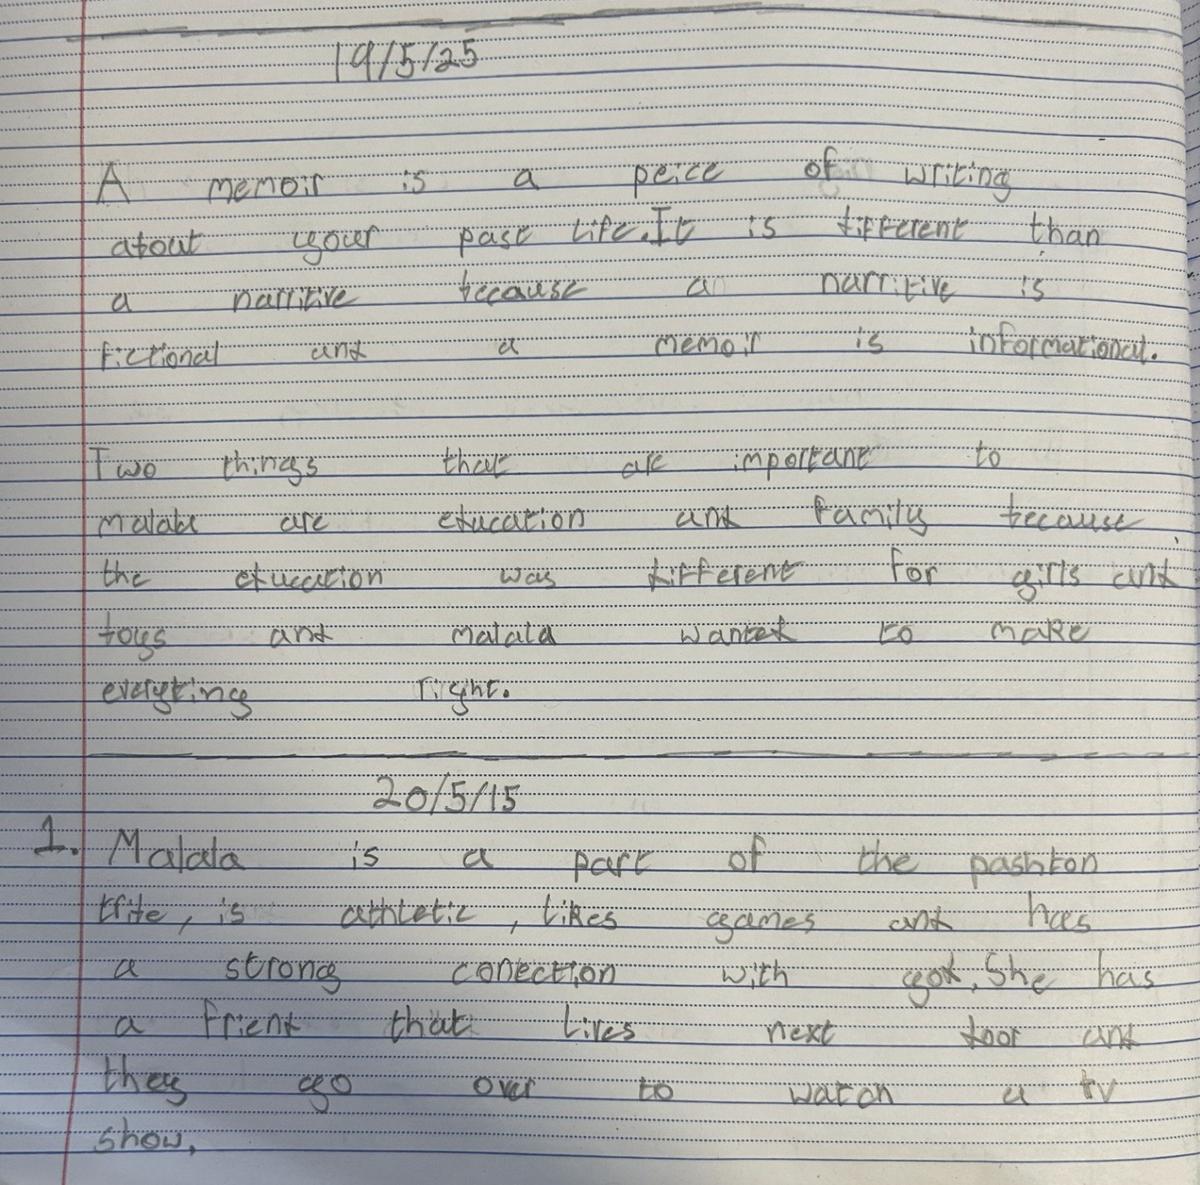 19/5/25
A memoir is a peice of writing
about your past life. It is different than
a narritive because a narritive is
fictional and a memoir is informational.
Two things that are important to
malala are education and family because
the education was different for girls and
boys and Malala wanted to make
everyting right.
20/5/15
1. Malala is a part of the pashton
tribe, is athletic, likes games and has
a strong conection with god, She has
a friend that lives next door and
they go over to watch a tv
show,